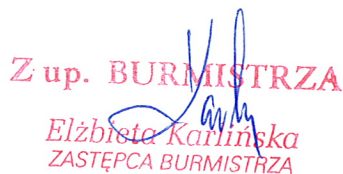 Z up. BURMISTRZA
Elżbieta Karlińska
ZASTĘPCA BURMISTRZA